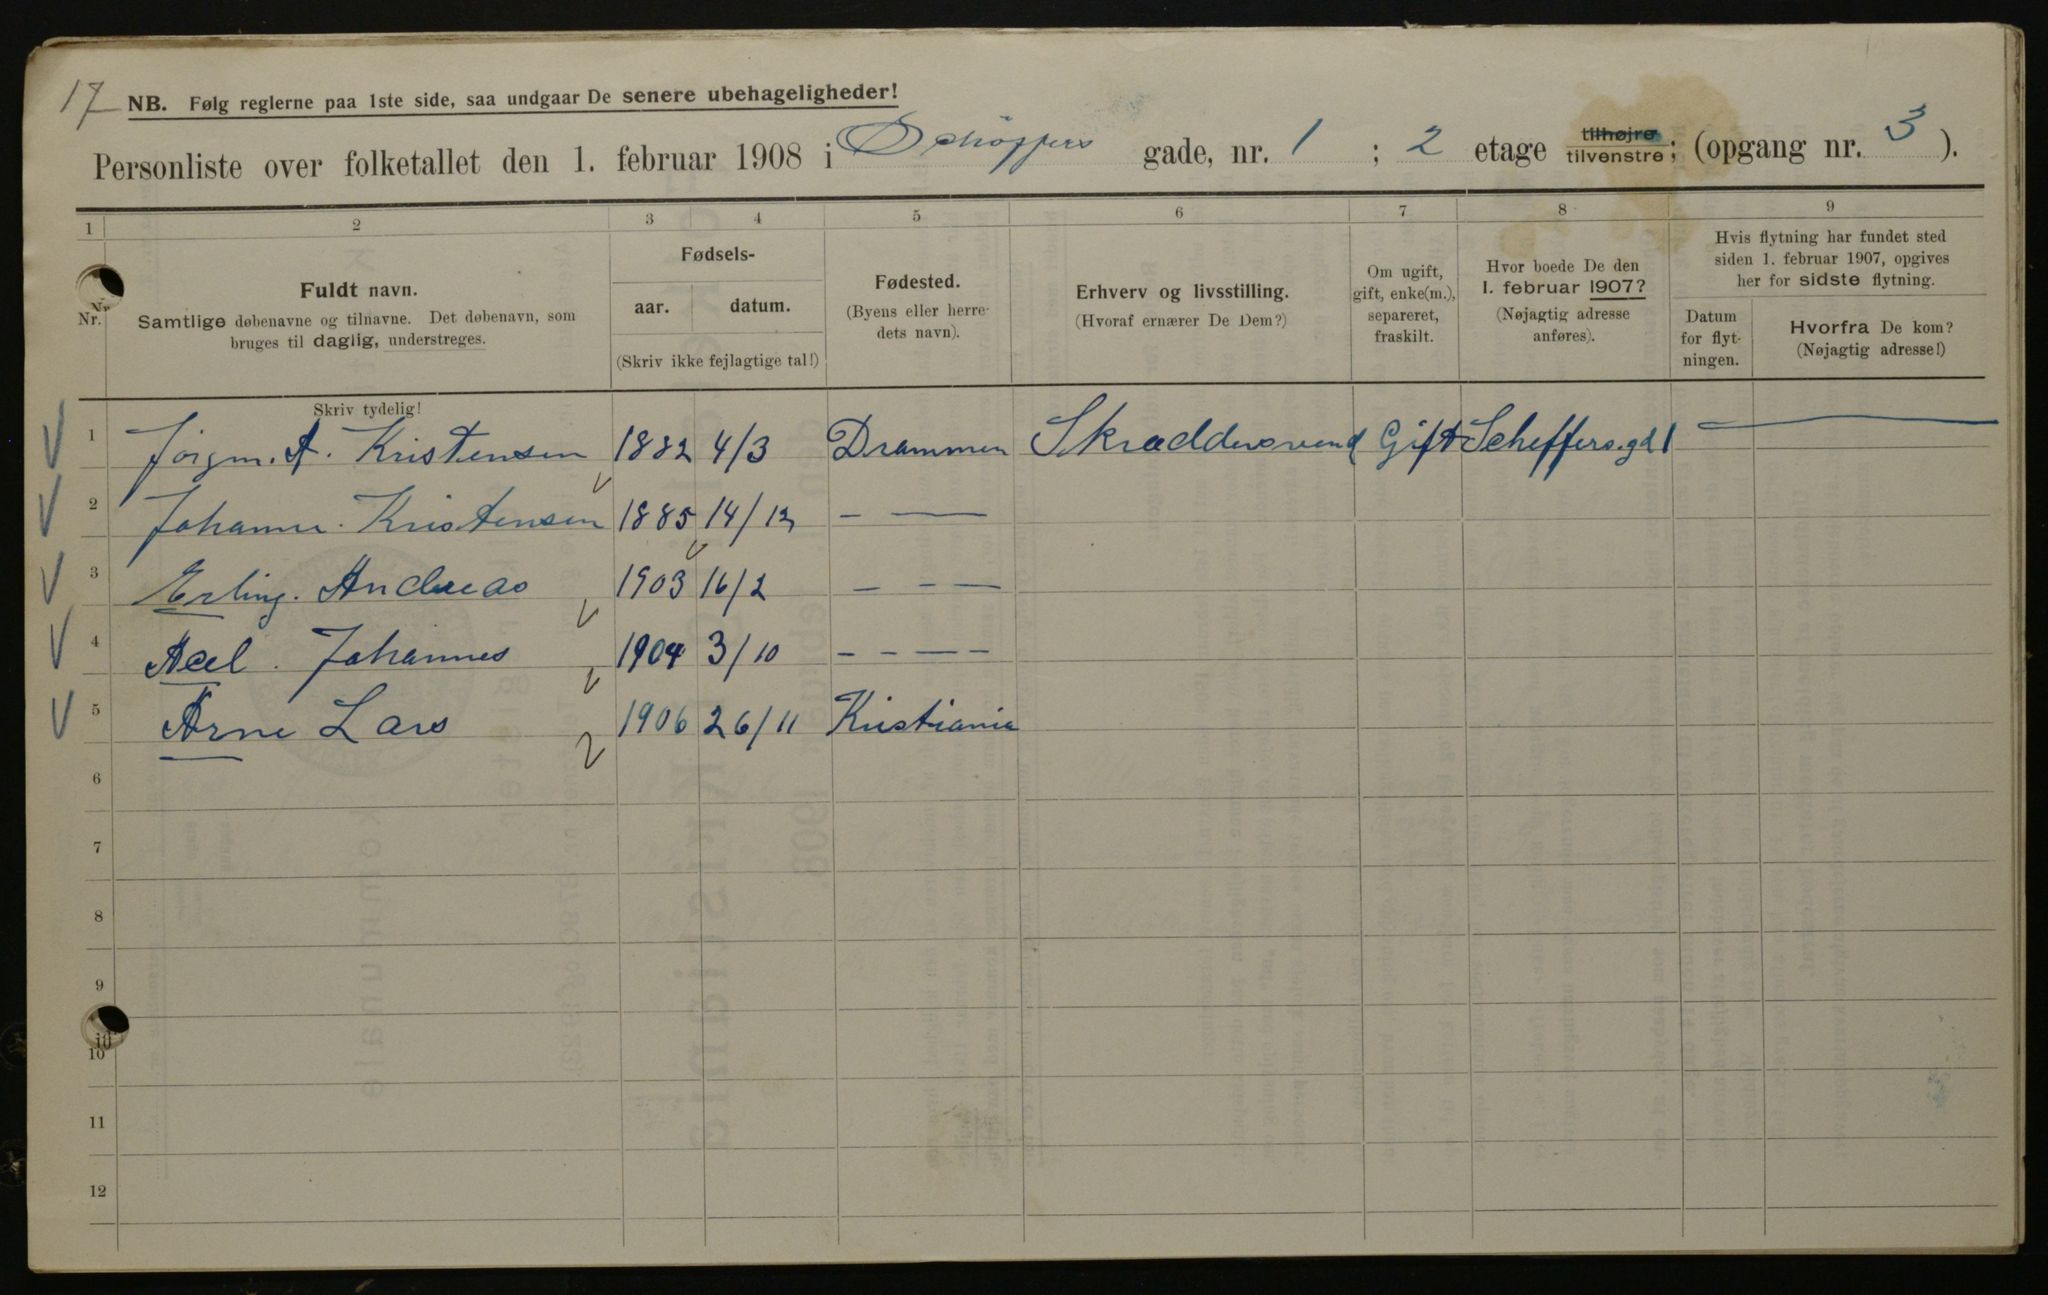 17 NB. Følg reglerne paa 1ste side, saa undgaar De senere ubehageligheder!
Personliste over folketallet den 1. februar 1908 i Schöffers gade, nr. 1 ; 2 etage tilhøjre tilvenstre; (opgang nr. 3 ).
1 2 3 4 5 6 7 8 9
Nr.
Fuldt navn.
Samtlige døbenavne og tilnavne. Det døbenavn, som
bruges til daglig, understreges.
Fødsels-
aar. datum.
(Skriv ikke fejlagtige tal!)
Fødested.
(Byens eller herre-
dets navn).
Erhverv og livsstilling.
(Hvoraf ernærer De Dem?)
Om ugift,
gift, enke(m.),
separeret,
fraskilt.
Hvor boede De den
1. februar 1907?
(Nøjagtig adresse
anføres).
Hvis flytning har fundet sted
siden 1. februar 1907, opgives
her for sidste flytning.
Datum
for flyt-
ningen.
Hvorfra De kom?
(Nøjagtig adresse!)
Skriv tydelig!
1 Jörgm. A. Kristensen 1882 4/3 Drammen Skræddersvend Gift Scheffers.gd 1 —
2 Johanne. Kristensen 1885 14/12 – —
3 Erling. Andreas 1903 16/2 – – —
4 Acel. Johannes 1904 3/10 – – — –
5 Arne Lars 1906 26/11 Kristiania
6
7
8
9
10
10
11
12